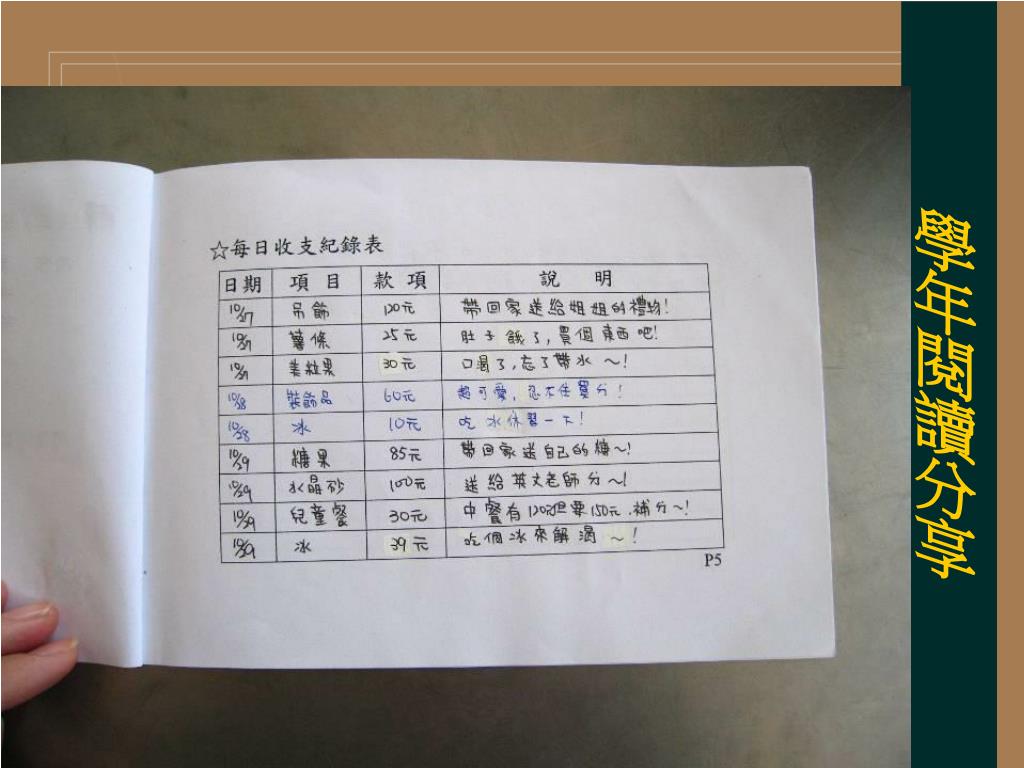 ☆每日收支紀錄表
日期 項目 款項 說明
10/27 吊飾 120元 帶回家送給姐姐的禮物!
10/27 薯條 25元 肚子餓了,買個東西吧!
10/27 美粒果 30元 口渴了,忘了帶水~!
10/28 裝飾品 60元 超可愛,忍不住買分!
10/28 冰 10元 吃冰休習一下!
10/29 糖果 85元 帶回家送自己的糖~!
10/29 水晶砂 100元 送給英文老師分~!
10/29 兒童餐 30元 中餐有120元但要150元.補分~!
10/29 冰 39元 吃個冰來解渴~!
P5
學年閱讀分享